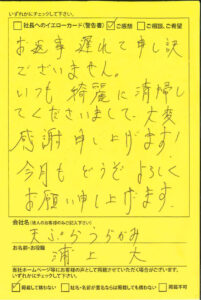 いずれかにチェックして下さい。
□社長へのイエローカード(警告書) ☑ご感想 □ご相談、ご希望
お返事遅れて申し訳
ございません。
いつも綺麗に清掃し
てくださいまして、大変
感謝申し上げます!
今月もどうぞよろしく
お願い申し上げます.
会社名(法人のお客様のみご記入下さい)
天ぷらうらかみ
お名前・お役職
浦上 大
当社ホームページ等にお客様の声として掲載させていただく場合がございます。
いずれかにチェックして下さい。
☑掲載して構わない □社名・名前が匿名ならば掲載しても構わない □掲載不可